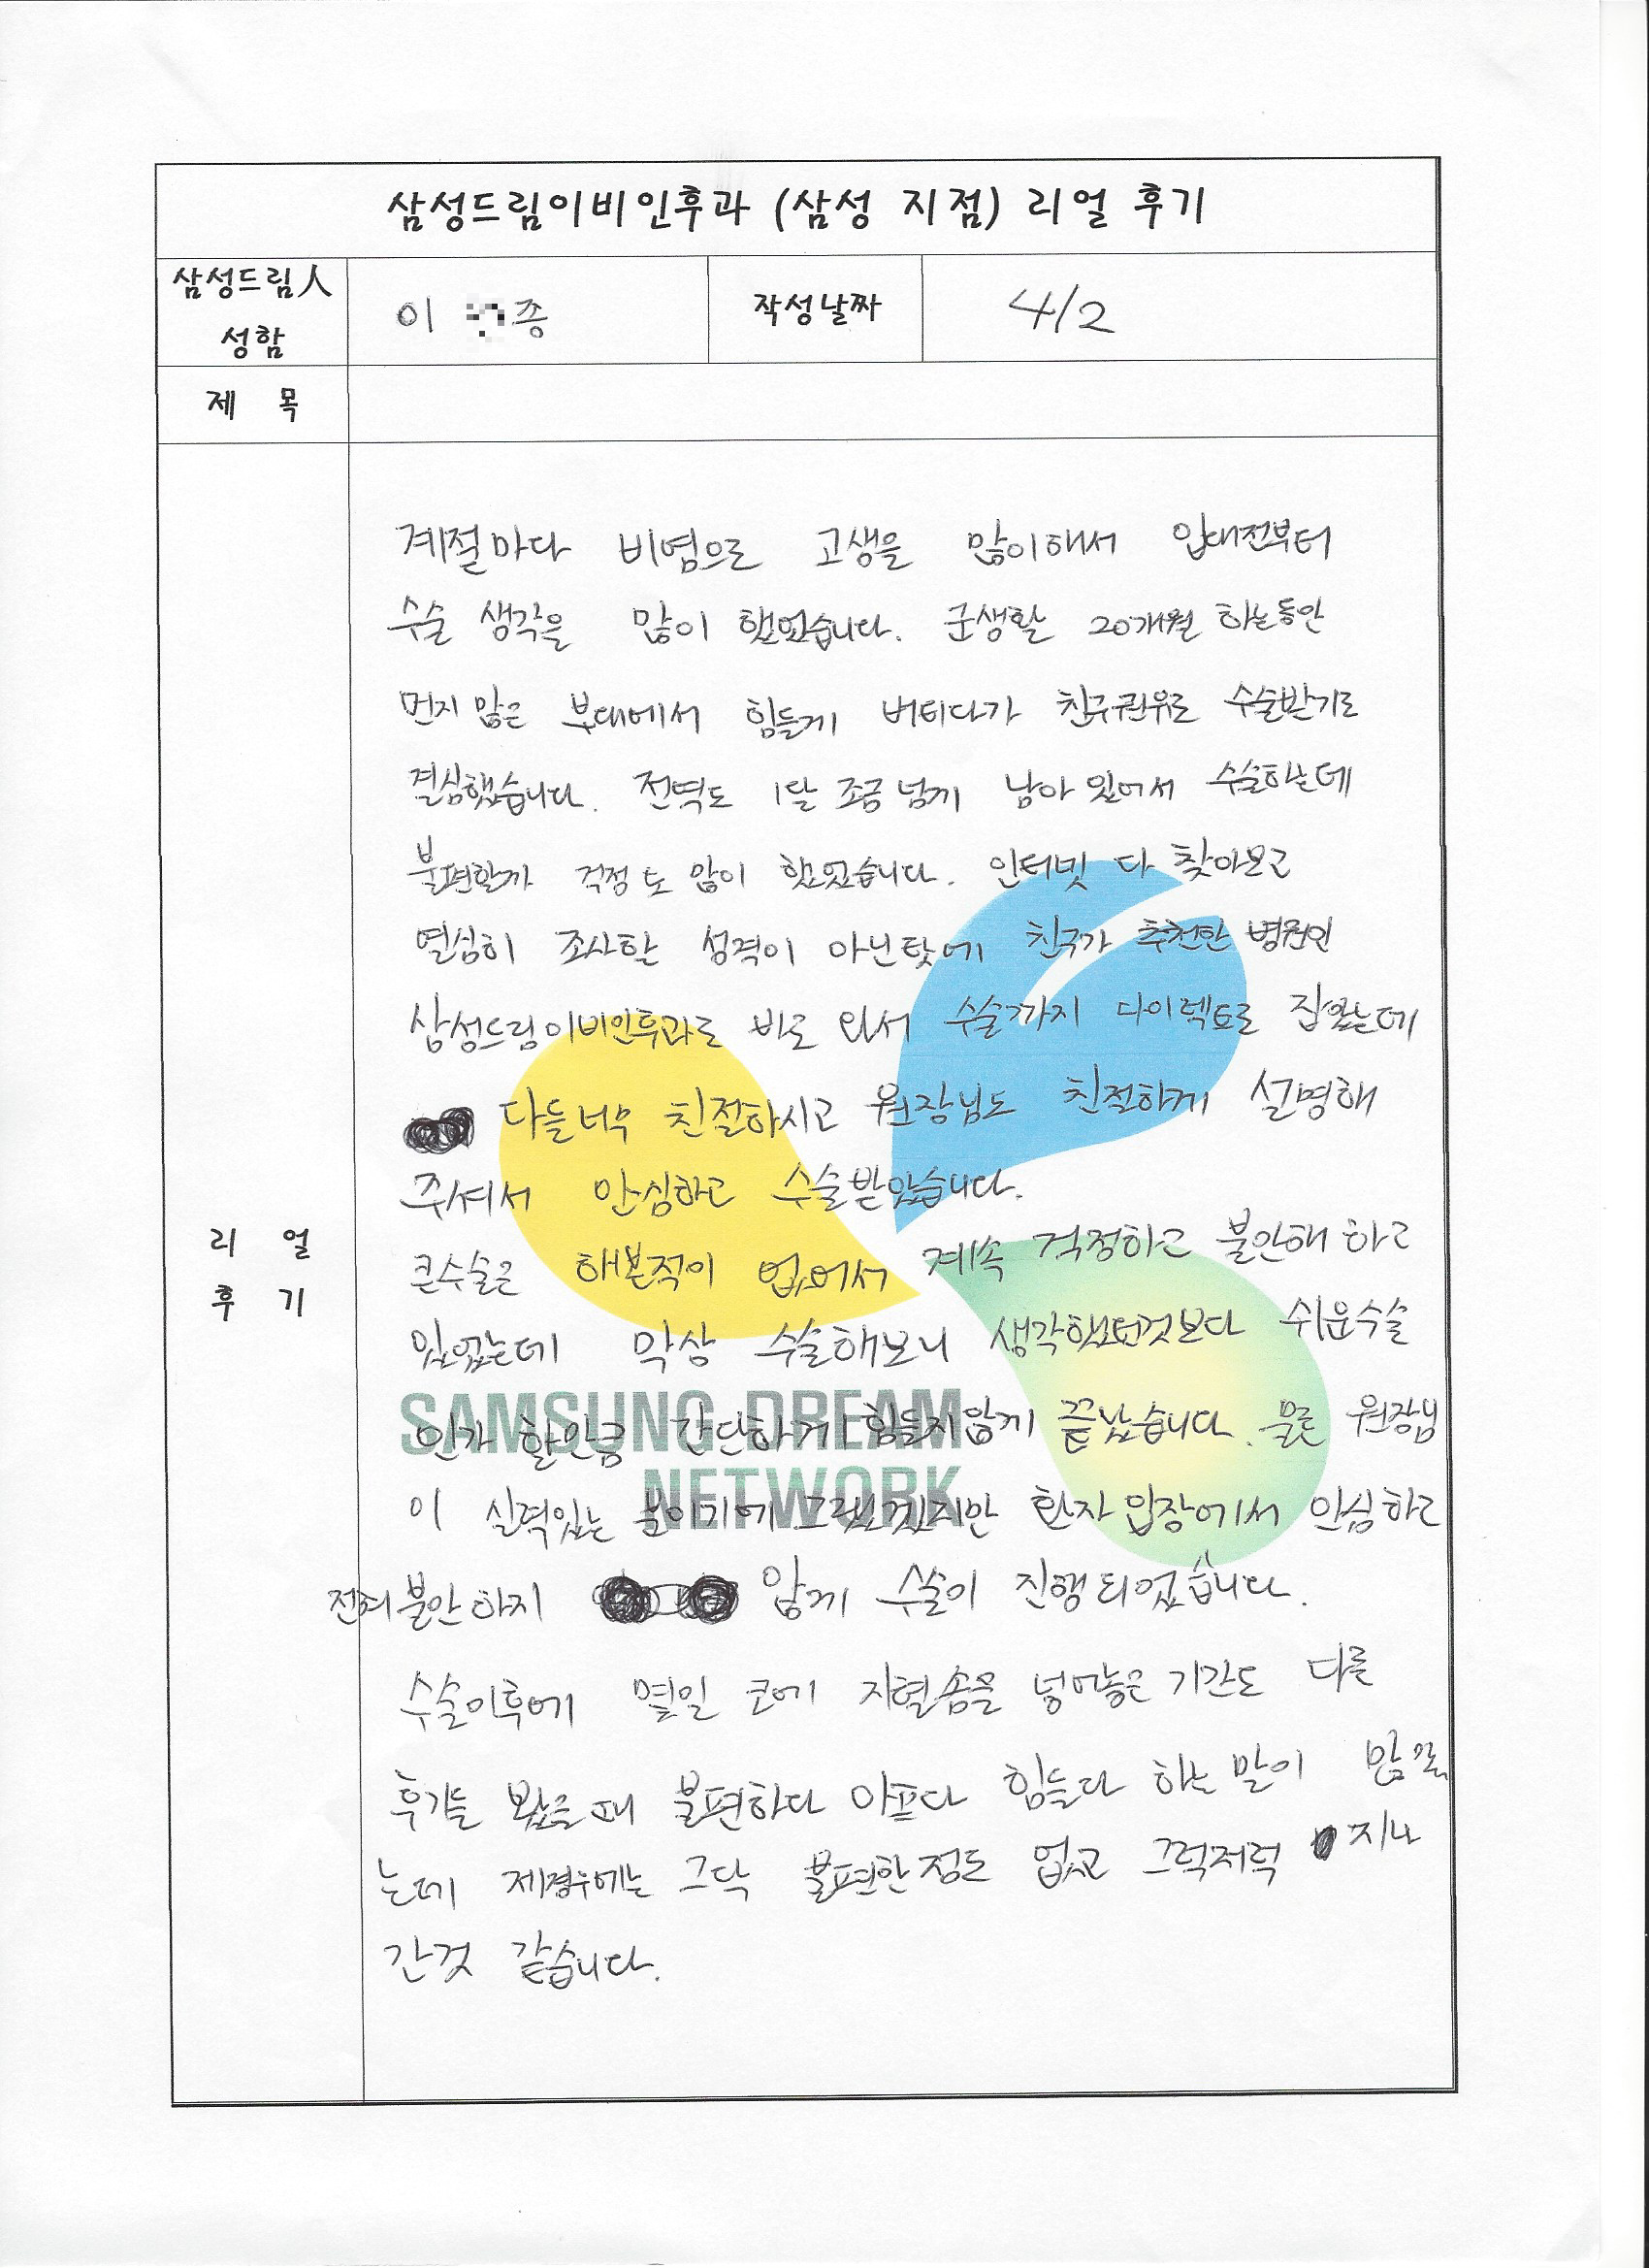 삼성드림이비인후과 (삼성 지점) 리얼 후기
삼성드림人
성함
이 종
작성날짜
4/2
제 목
계절마다 비염으로 고생을 많이해서 입대전부터
수술 생각을 많이 했었습니다. 군생활 20개월 하는동안
먼지 많은 부대에서 힘들게 버티다가 친구권유로 수술받기로
결심했습니다. 전역도 1달 조금 넘게 남아 있어서 수술하는데
불편할까 걱정도 많이 했었습니다. 인터넷 다 찾아보고
열심히 조사할 성격이 아닌탓에 친구가 추천한 병원인
삼성드림이비인후과로 바로 와서 수술까지 다이렉트로 잡았는데
다들너무 친절하시고 원장님도 친절하게 설명해
주셔서 안심하고 수술받았습니다.
리 얼
후 기
큰수술은 해본적이 없어서 계속 걱정하고 불안해 하고
있었는데 막상 수술해보니 생각했던것보다 쉬운수술
SAMSUNG DREAM
NETWORK
인가 할만큼 간단하게 힘들지않게 끝났습니다. 물론 원장님
이 실력있는 분이기에 그랬겠지만 환자 입장에서 안심하고
전혀 불안하지 않게 수술이 진행되었습니다.
수술이후에 몇일 코에 지혈솜을 넣어놓은 기간도 다른
후기들 봤을때 불편하다 아프다 힘들다 하는 말이 많았
는데 제경우에는 그닥 불편한정도 없고 그럭저럭 지나
간것 같습니다.